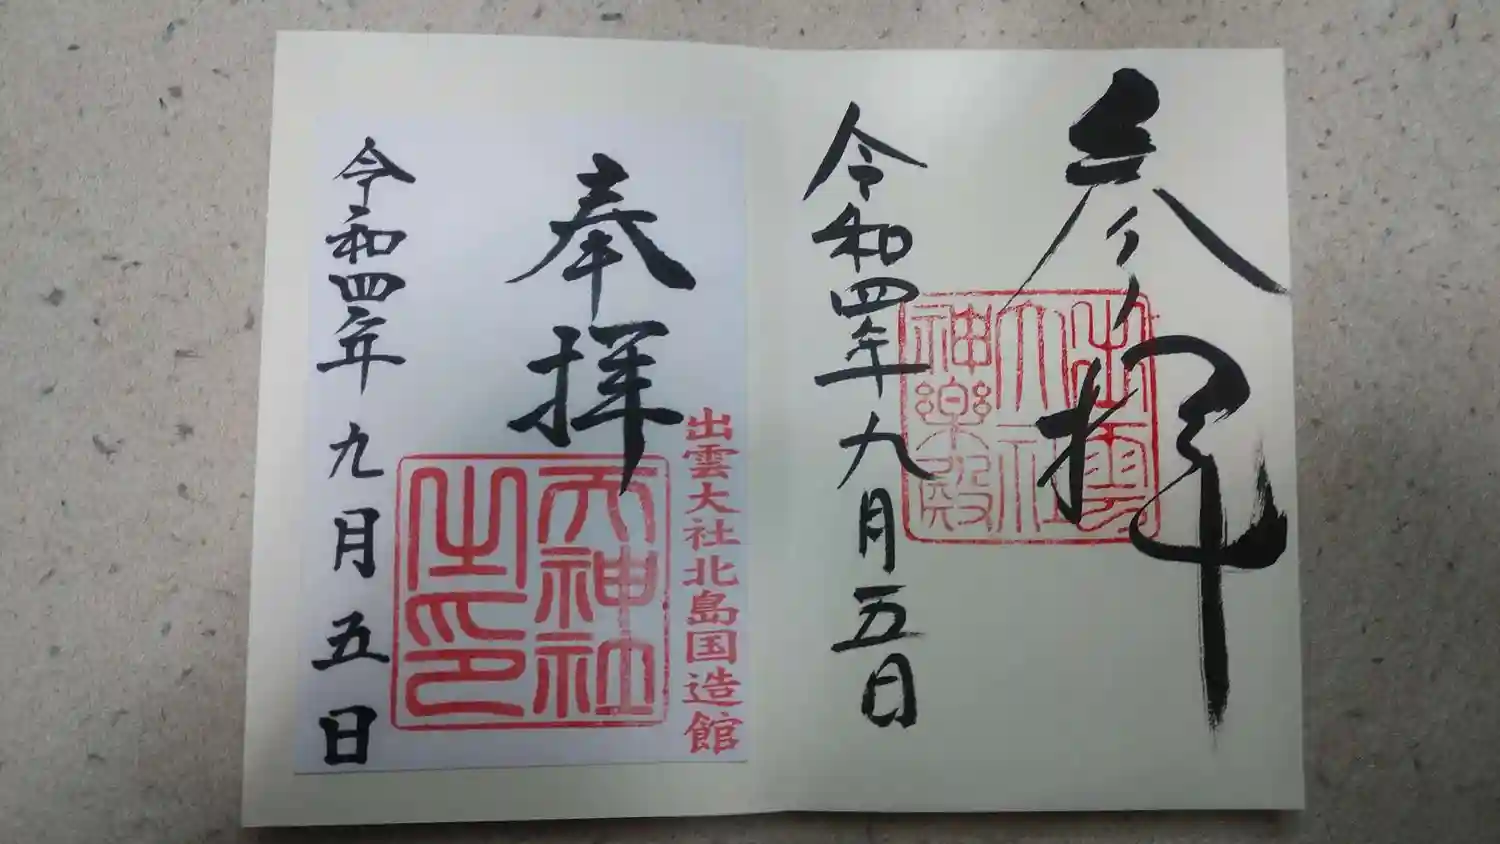 参拝
出雲
大社
神楽殿
令和四年九月五日
奉拝
出雲大社北島国造館
天神社
之印
令和四年九月五日